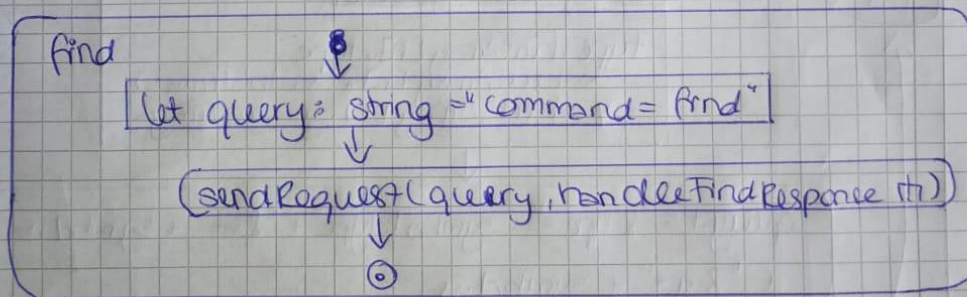 find
let query: string ="command= find"
sendRequest(query, handleFindResponse